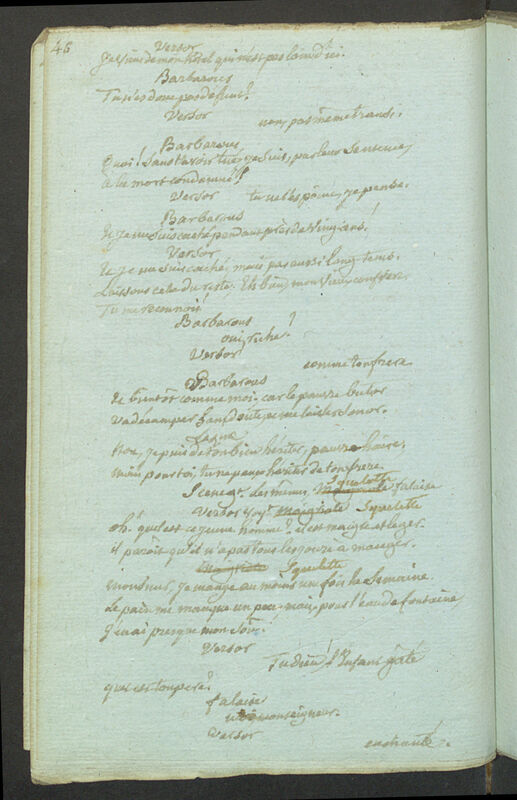 46
Versor
Je viens de mon hotel qui n'est pas loin d'ici.
Barbarous
Tu n'es donc pas defunt?
Versor
non, pas même transi.
Barbarous
Quoi! sans t'avoir tué, je suis, par leur sentence,
à la mort condamné!
Versor
tu ne l'es pas, je pense.
Barbarous
Et je me suis caché pendant près de vingt ans!
Versor
Et je me suis caché, mais pas aussi long-tems.
Laissons cela du reste. Eh bien, mon vieux confrere
Tu me reconnois!
Barbarous
oui, riche?
Versor
comme ton frere
Barbarous
Et bientôt comme moi, car le pauvre butor
va décamper sans doute, et me laisser son or.
Non, je puis de ton bien heriter, pauvre hère,
mais pour toi, tu ne peux hériter de ton frere
Scene les mêmes, Squelette falaise
Versor Squelette
oh! quel est ce jeune homme? il est maigre et leger.
il paroît qu'il n'a pas tous les jours à manger.
Squelette
monsieur, je mange au moins une fois la semaine.
Le pain me manque un peu, mais pour l'eau de fontaine
J'en ai presque mon soû.
Versor
Tudieu! l'enfant gâté
qui est ton pere?
falaise
monseigneur.
Versor
enchanté.